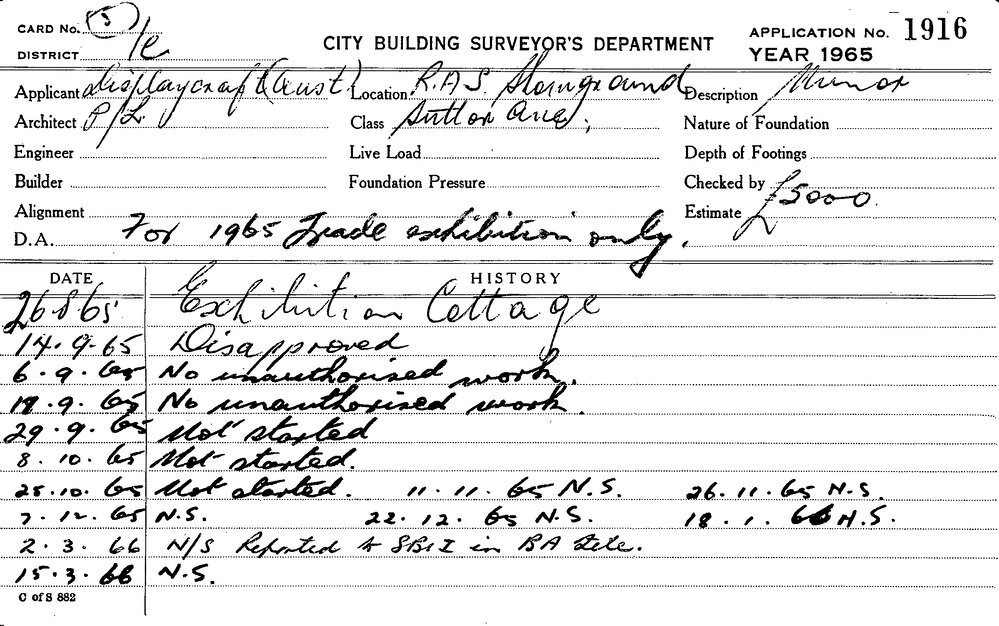 CARD No. 5
APPLICATION No. 1916
DISTRICT
CITY BUILDING SURVEYOR'S DEPARTMENT
YEAR 1965
Applicant Displaycraft (Aust) Location R.A.S. Showground Description Minor
Architect P/L Class Sutton Ave, Nature of Foundation
Engineer Live Load Depth of Footings
Builder Foundation Pressure Checked by
Alignment Estimate £5000
D.A. For 1965 Trade exhibition only.
DATE HISTORY
26.8.65 Exhibition Cottage
14.9.65 Disapproved
6.9.65 No unauthorised work.
17.9.65 No unauthorised work.
29.9.65 Not started
8.10.65 Not started.
25.10.65 Not started. 11.11.65 N.S. 26.11.65 N.S.
7.12.65 N.S. 22.12.65 N.S. 18.1.66 N.S.
2.3.66 N/S Reported to SBI in BA
15.3.66 N.S.
C of S 882